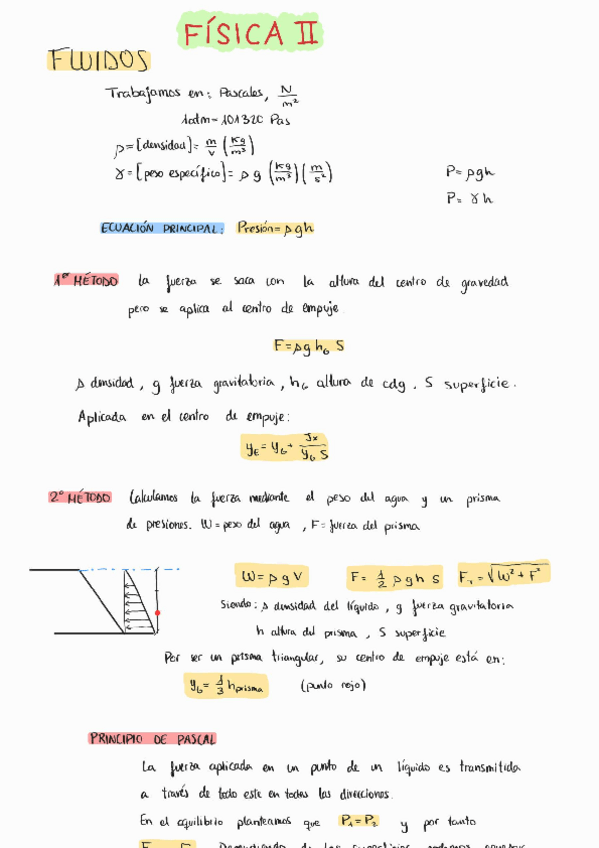 FÍSICA II
FLUIDOS
Trabajamos en: Pascales, N/m²
1atm - 101320 Pas
ρ = [densidad] = m/v (Kg/m³)
γ = [peso específico] = ρ g (Kg/m³)(m/s²)
P = ρgh
P = γh
ECUACIÓN PRINCIPAL: Presión = ρgh
1er MÉTODO La fuerza se saca con la altura del centro de gravedad
pero se aplica al centro de empuje.
F = ρg hG S
ρ densidad, g fuerza gravitatoria, hG altura de cdg, S superficie.
Aplicada en el centro de empuje:
yE = yG + Jx/(yG S)
2º MÉTODO Calculamos la fuerza mediante el peso del agua y un prisma
de presiones. W = peso del agua, F = fuerza del prisma
W = ρ g V F = 1/2 ρ g h S Fr = √(W² + F²)
Siendo: ρ densidad del líquido, g fuerza gravitatoria
h altura del prisma, S superficie
Por ser un prisma triangular, su centro de empuje está en:
yG = 1/3 hprisma (punto rojo)
PRINCIPIO DE PASCAL
La fuerza aplicada en un punto de un líquido es transmitida
a través de todo este en todas las direcciones.
En el equilibrio planteamos que P1 = P2 y por tanto